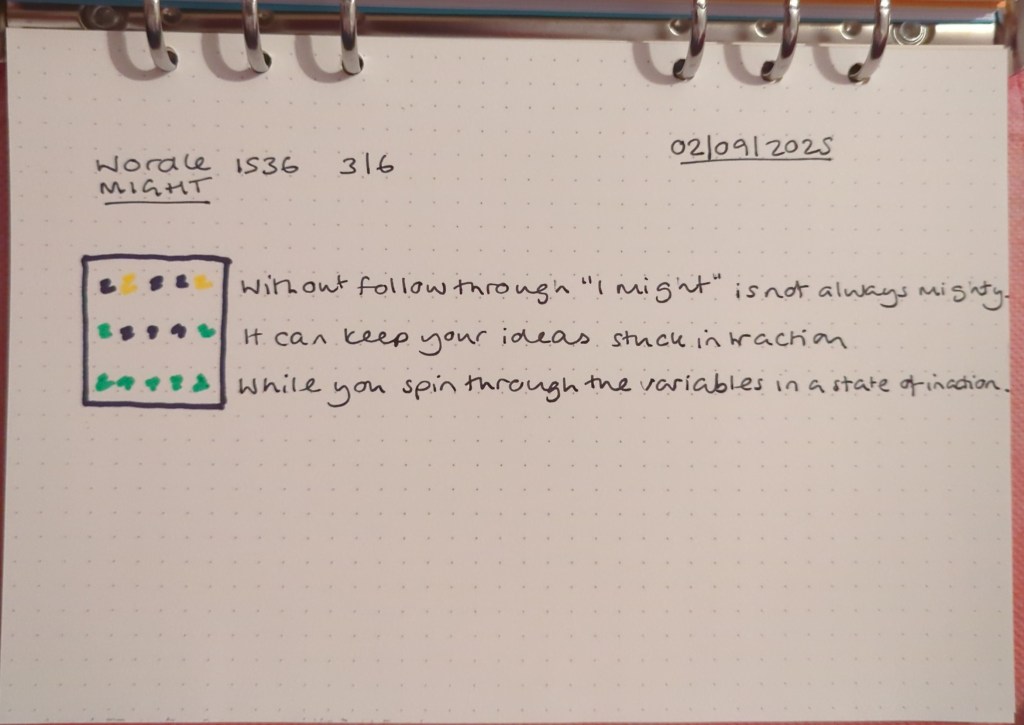 Wordle 1536 3/6
MIGHT
02/09/2025
Without follow through "I might" is not always mighty.
It can keep your ideas stuck in traction
While you spin through the variables in a state of inaction.